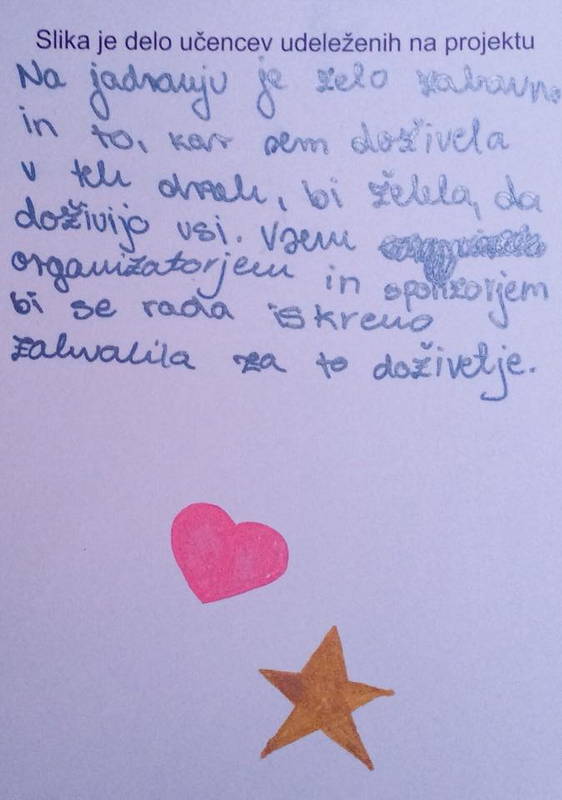 Slika je delo učencev udeleženih na projektu
Na jadranju je zelo zabavno
in to, kar sem doživela
v teh dneh, bi želela, da
doživijo vsi. Vsem
organizatorjem in sponzorjem
bi se rada iskreno
zahvalila za to doživetje.